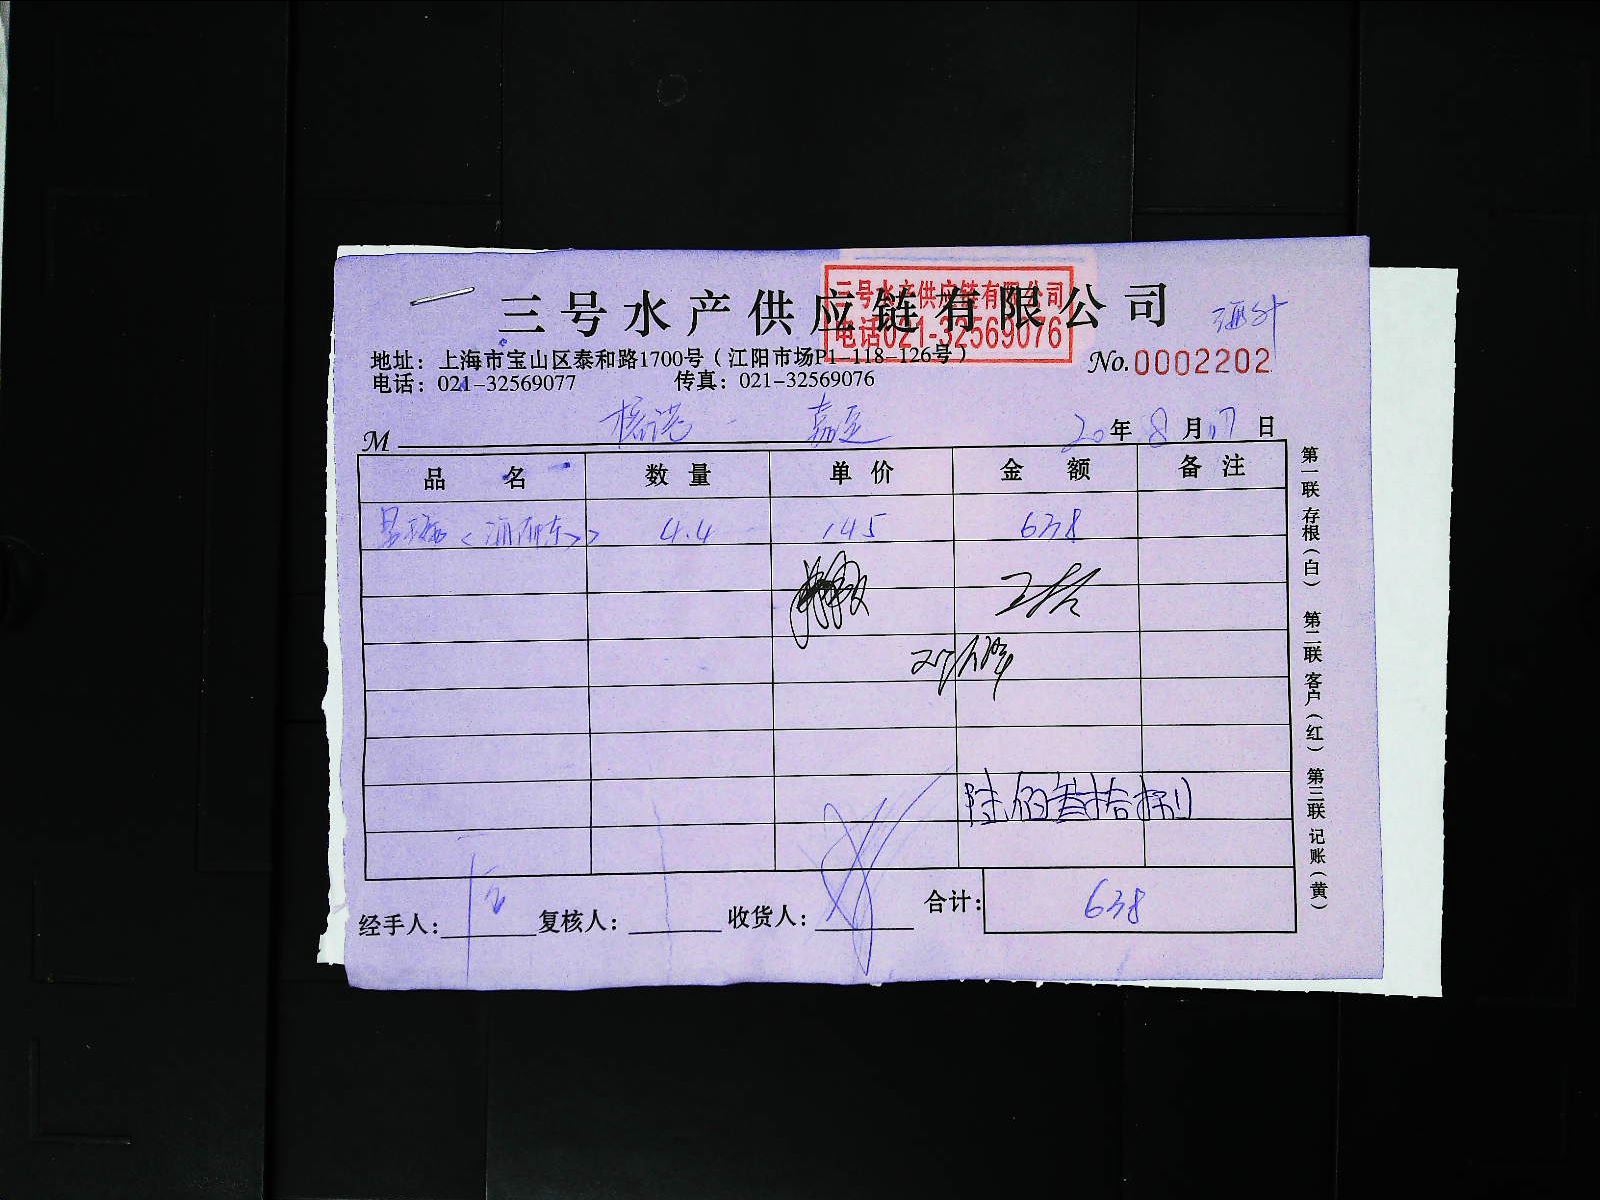 三号水产供应链有限公司
三号水产供应链有限公司
电话021-32569076
地址：上海市宝山区泰和路1700号（江阳市场P1-118-126号）
No.0002202
电话：021-32569077 传真：021-32569076
M 嘉定 20年8月17日
品名 数量 单价 金额 备注
4.4 145 638
陆佰叁拾捌
合计： 638
经手人： 复核人： 收货人：
第一联 存根（白） 第二联 客户（红） 第三联 记账（黄）